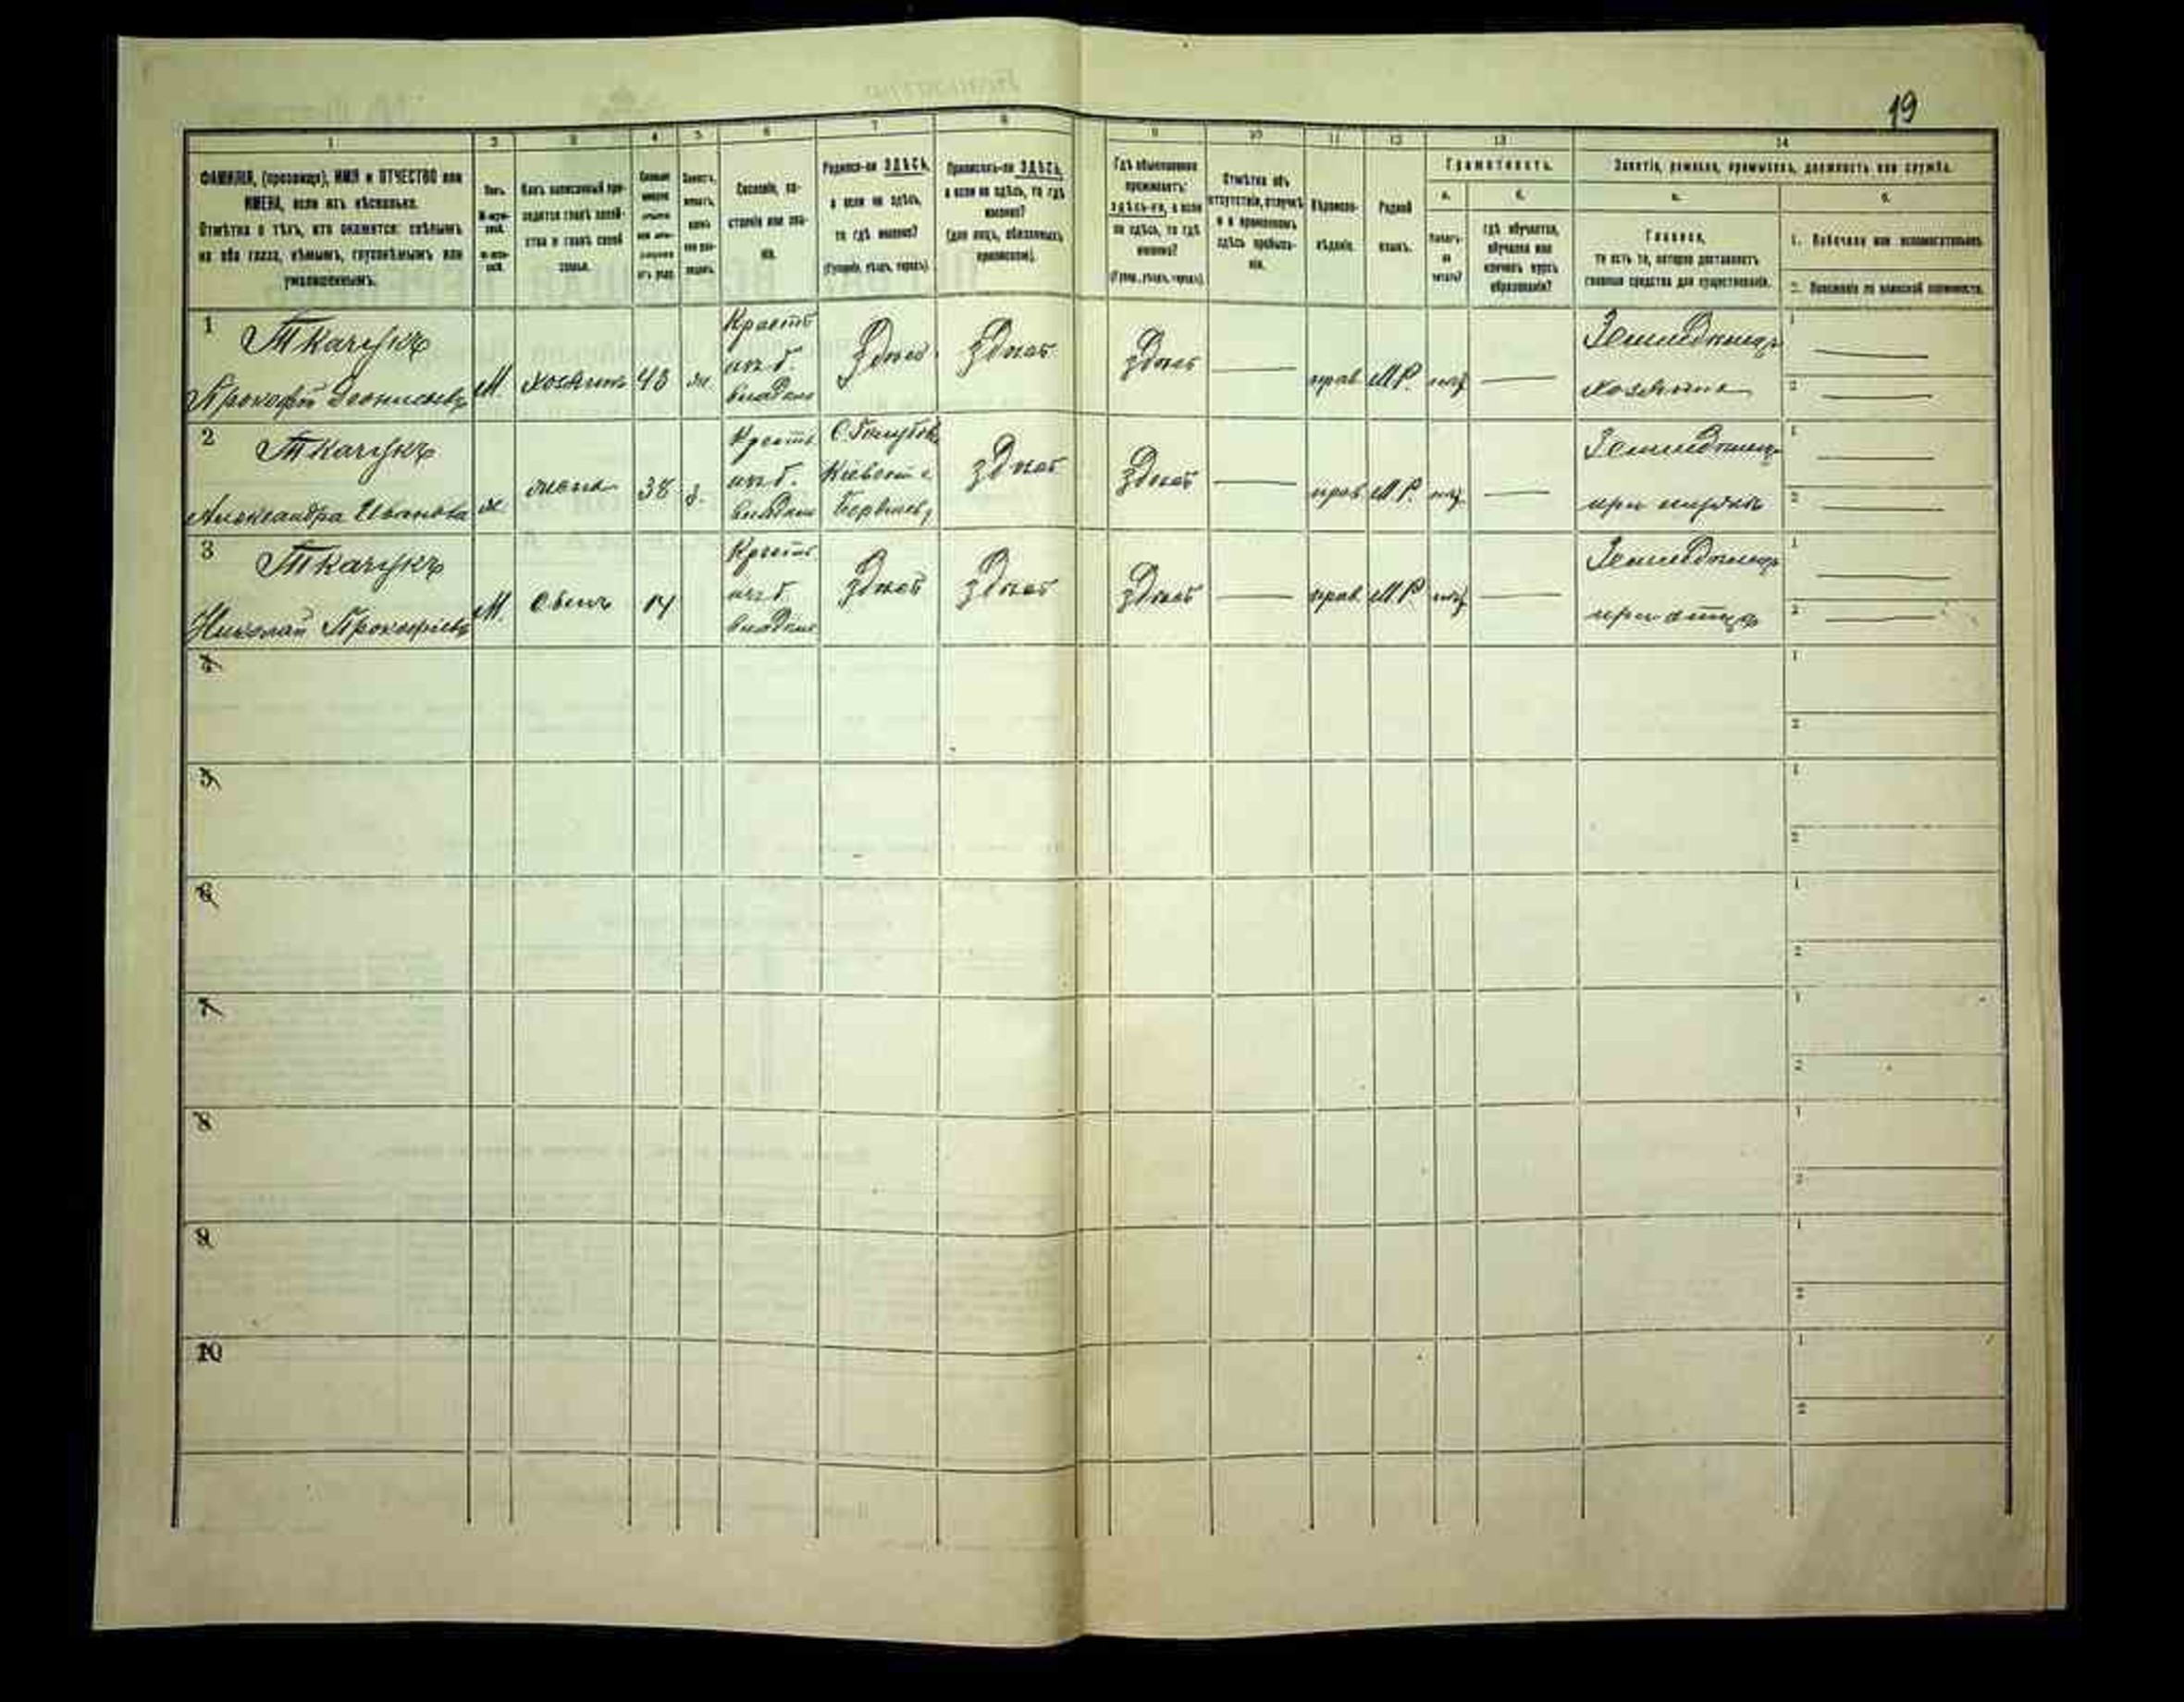 19
1 2 3 4 5 6 7 8 9 10 11 12 13 14
ФАМИЛІЯ, (прозвище), ИМЯ и ОТЧЕСТВО или
ИМЕНА, если ихъ нѣсколько.
Отмѣтка о тѣхъ, кто окажется: слѣпымъ
на оба глаза, нѣмымъ, глухонѣмымъ или
умалишеннымъ.
Полъ.
Какъ записанный при-
ходится главѣ хозяй-
ства и главѣ своей
семьи.
Сословіе, со-
стояніе или зва-
ніе.
Родился-ли ЗДѢСЬ,
а если не здѣсь,
то гдѣ именно?
(Губернія, уѣздъ, городъ).
Приписанъ-ли ЗДѢСЬ,
а если не здѣсь, то гдѣ
именно?
(для лицъ, обязанныхъ
припискою).
Гдѣ обыкновенно
проживаетъ:
здѣсь-ли, а если
не здѣсь, то гдѣ
именно?
(Губер., уѣздъ, городъ).
Отмѣтка объ
отсутствіи, отлучкѣ
и о временномъ
здѣсь пребыва-
ніи.
Вѣроиспо-
вѣданіе.
Родной
языкъ.
Грамотность.
а.
Умѣетъ-
ли
читать?
б.
гдѣ обучается,
обучался или
кончилъ курсъ
образованія?
Занятіе, ремесло, промыселъ, должность или служба.
а.
Главное,
то есть то, которое доставляетъ
главныя средства для существованія.
б.
1. Побочное или вспомогательное.
2. Положеніе по воинской повинности.
1 Ткачукъ
Прокофій Деонисьевъ М хозяинъ 48 ж. Крестъ из б. владѣл Здѣсь здѣсь здѣсь — прав М.Р. нѣт — Земледѣлецъ хозяинъ 1 — 2 —
2 Ткачукъ
Александра Иванова ж жена 38 з. Крестъ из б. владѣл здѣсь здѣсь — прав М.Р. нѣт — Земледѣлецъ при мужѣ 1 — 2 —
3 Ткачукъ
Николай Прокофіевъ М. сынъ 14 Крестъ из б. владѣл здѣсь здѣсь здѣсь — прав М.Р. нѣт — Земледѣлецъ при отцѣ 1 — 2 —
4 1
2
5 1
2
6 1
2
7 1
2
8 1
2
9 1
2
10 1
2